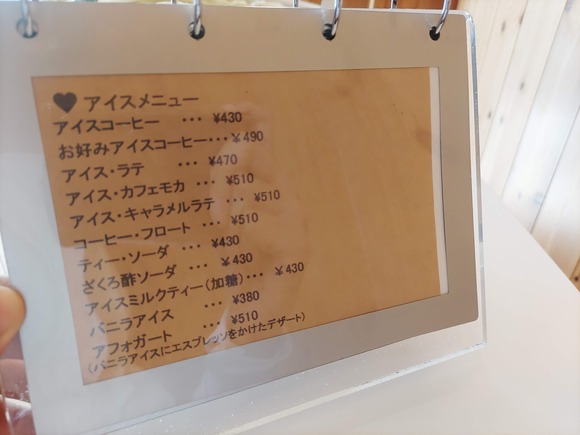 ♥ アイスメニュー
アイスコーヒー ・・・ ¥430
お好みアイスコーヒー・・・¥490
アイス・ラテ ・・・ ¥470
アイス・カフェモカ ・・・ ¥510
アイス・キャラメルラテ ・・・ ¥510
コーヒー・フロート ・・・ ¥510
ティー・ソーダ ・・・ ¥430
ざくろ酢ソーダ ・・・ ¥430
アイスミルクティー(加糖)・・・ ¥430
バニラアイス ・・・ ¥380
アフォガート ・・・ ¥510
(バニラアイスにエスプレッソをかけたデザート)